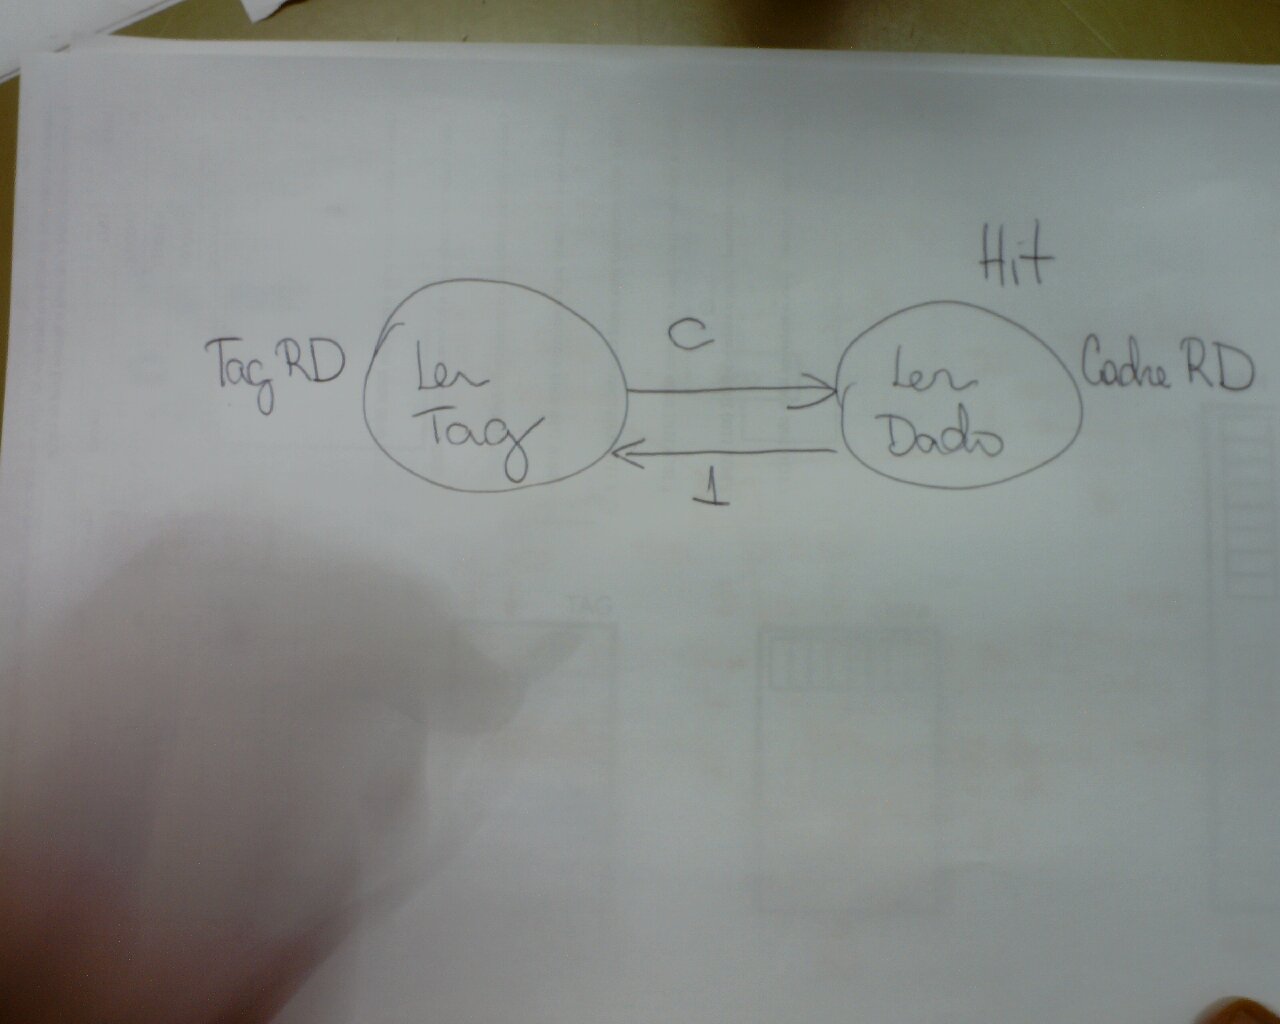 Hit
Tag RD
Ler
Tag
C
1
Ler
Dado
Cache RD
TAG